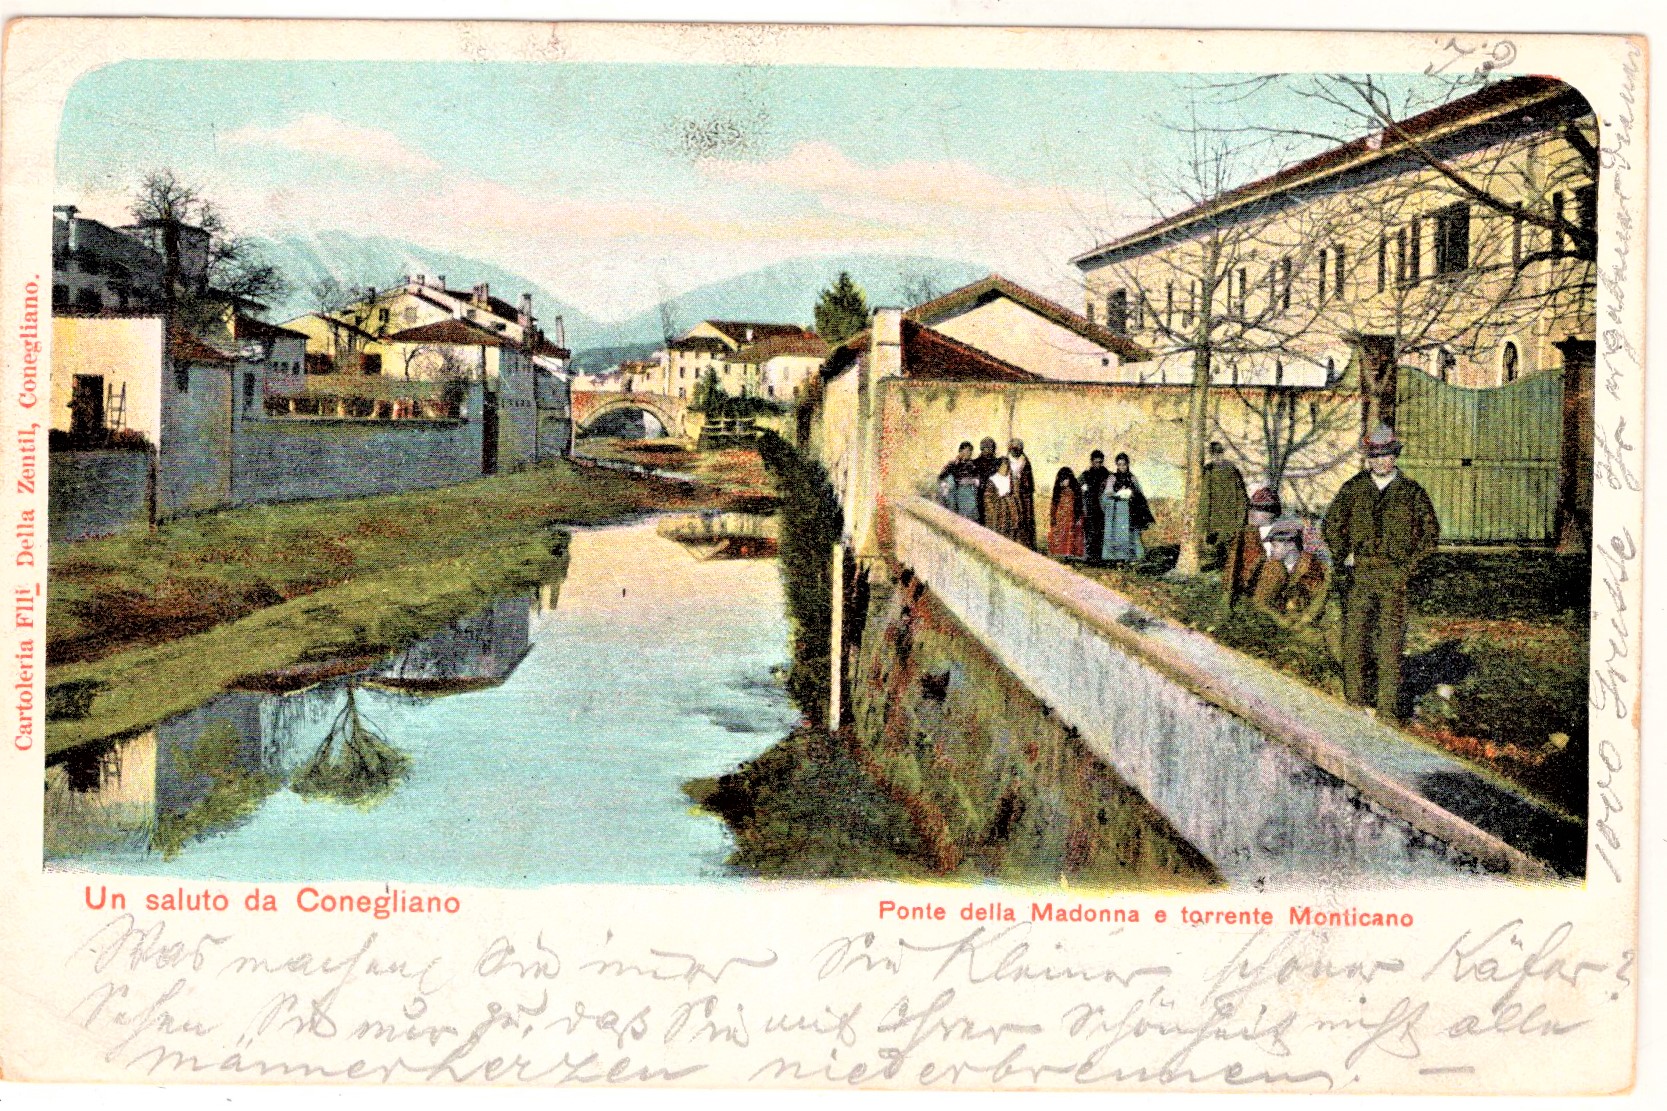 Cartoleria F.lli Della Zentil, Conegliano.
Un saluto da Conegliano
Ponte della Madonna e torrente Monticano
Was machen Sie immer Sie Kleiner, schöner Käfer?
Sehen Sie nur zu, daß Sie mit Ihrer Schönheit nicht alle
männerherzen niederbrennen. —
1000 Grüsse Ihr ergebener